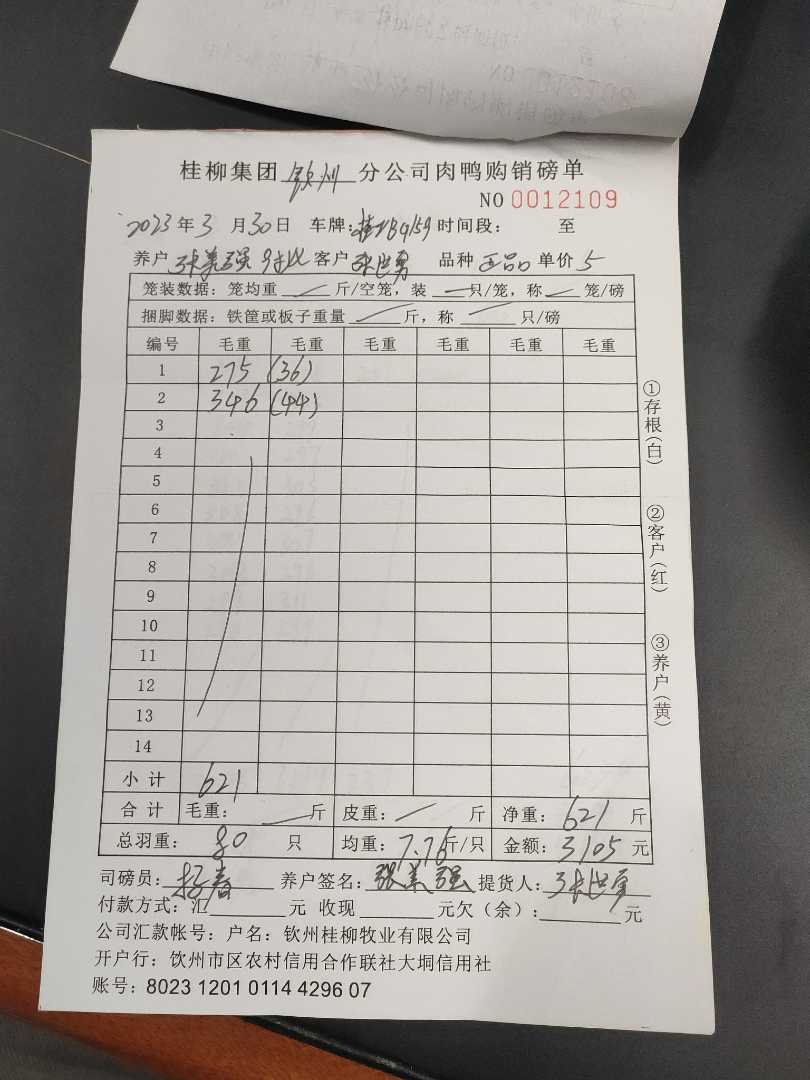 桂柳集团 钦州 分公司肉鸭购销磅单
NO 0012109
2023年3月30日 车牌: 时间段: 至
养户 张美强 客户 张世勇 品种 正品 单价 5
笼装数据: 笼均重 斤/空笼, 装 只/笼, 称 笼/磅
捆脚数据: 铁筐或板子重量 斤, 称 只/磅
编号 毛重 毛重 毛重 毛重 毛重 毛重
1 275 (36)
2 346 (44)
3
4
5
6
7
8
9
10
11
12
13
14
小计 621
合计 毛重: 斤 皮重: 斤 净重: 621 斤
总羽重: 80 只 均重: 7.76 斤/只 金额: 3105 元
司磅员: 杨春 养户签名: 张美强 提货人: 张世勇
付款方式: 汇 元 收现 元欠(余): 元
公司汇款帐号: 户名: 钦州桂柳牧业有限公司
开户行: 饮州市区农村信用合作联社大垌信用社
账号: 8023 1201 0114 4296 07
①存根(白)
②客户(红)
③养户(黄)